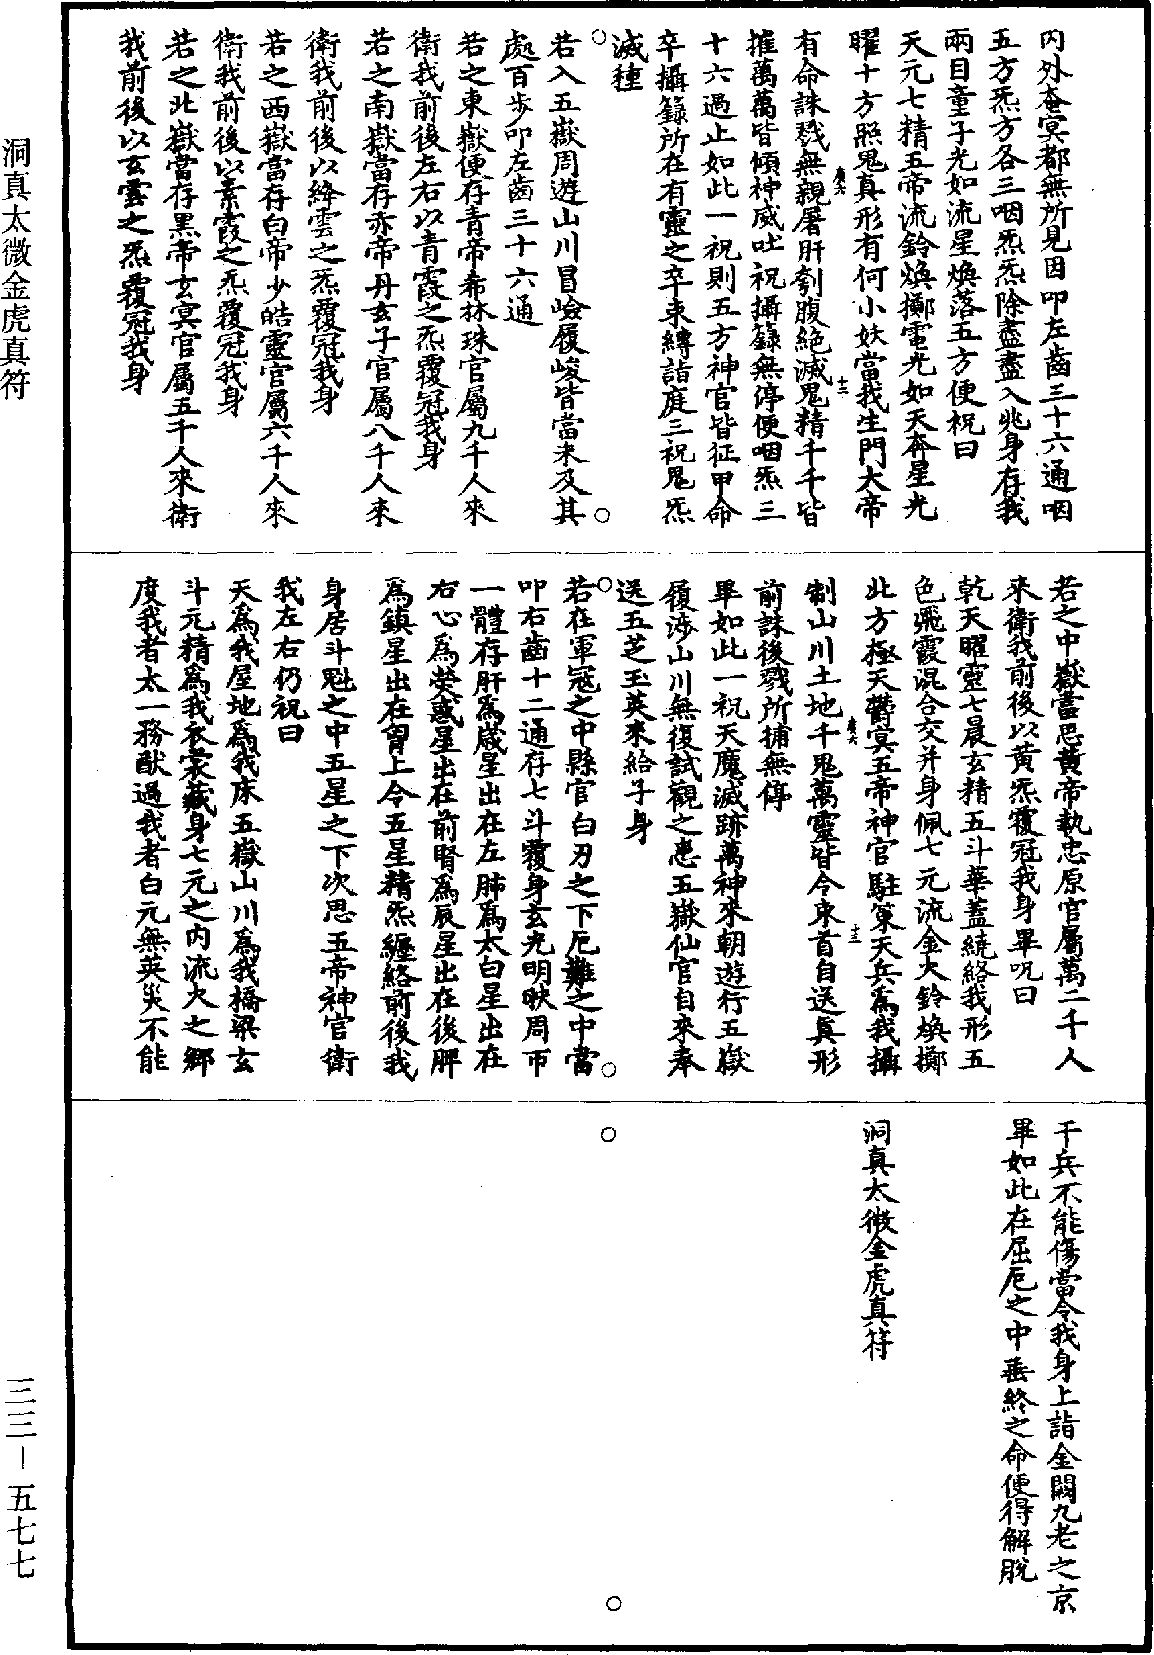 內外奄冥都無所見因叩左齒三十六通咽
五方炁方各三咽炁炁除盡盡入兆身存我
兩目童子光如流星煥落五方便祝曰
天元七精五帝流鈴煥擲電光如天奔星光
曜十方照鬼真形有何小妖當我生門大帝
有命誅戮無親屠肝刳腹絕滅鬼精千千皆
摧萬萬皆傾神威吐祝攝錄無停便咽炁三
十六過止如此一祝則五方神官皆征甲命
卒攝錄所在有靈之卒束縛詣庭三祝鬼炁
滅種
若入五嶽周遊山川冒嶮履峻皆當未及其
處百步叩左齒三十六通
若之東嶽便存青帝希林珠官屬九千人來
衛我前後左右以青霞之炁覆冠我身
若之南嶽當存赤帝丹玄子官屬八千人來
衛我前後以絳雲之炁覆冠我身
若之西嶽當存白帝少皓靈官屬六千人來
衛我前後以素霞之炁覆冠我身
若之北嶽當存黑帝玄冥官屬五千人來衛
我前後以玄雲之炁覆冠我身
若之中嶽當思黃帝執忠原官屬萬二千人
來衛我前後以黃炁覆冠我身畢呪曰
乾天曜靈七晨玄精五斗華蓋繞絡我形五
色飛霞混合交并身佩七元流金火鈴煥擲
北方極天鬱冥五帝神官駐策天兵為我攝
制山川土地千鬼萬靈皆令束首自送真形
前誅後戮所捕無停
畢如此一祝天魔滅跡萬神來朝遊行五嶽
履涉山川無復試觀之患五嶽仙官自來奉
送五芝玉英來給子身
若在軍寇之中縣官白刃之下厄難之中當
叩右齒十二通存七斗覆身玄光明映周帀
一體存肝為歲星出在左肺為太白星出在
右心為熒惑星出在前腎為辰星出在後脾
為鎮星出在胃上令五星精炁纏絡前後我
身居斗魁之中五星之下次思五帝神官衛
我左右仍祝曰
天為我屋地為我床五嶽山川為我橋梁玄
斗元精為我衣裳藏身七元之內流火之鄉
度我者太一務猷過我者白元無英災不能
干兵不能傷當令我身上詣金闕九老之京
畢如此在屈厄之中垂終之命便得解脫
洞真太微金虎真符
洞真太微金虎真符
三三－五七七